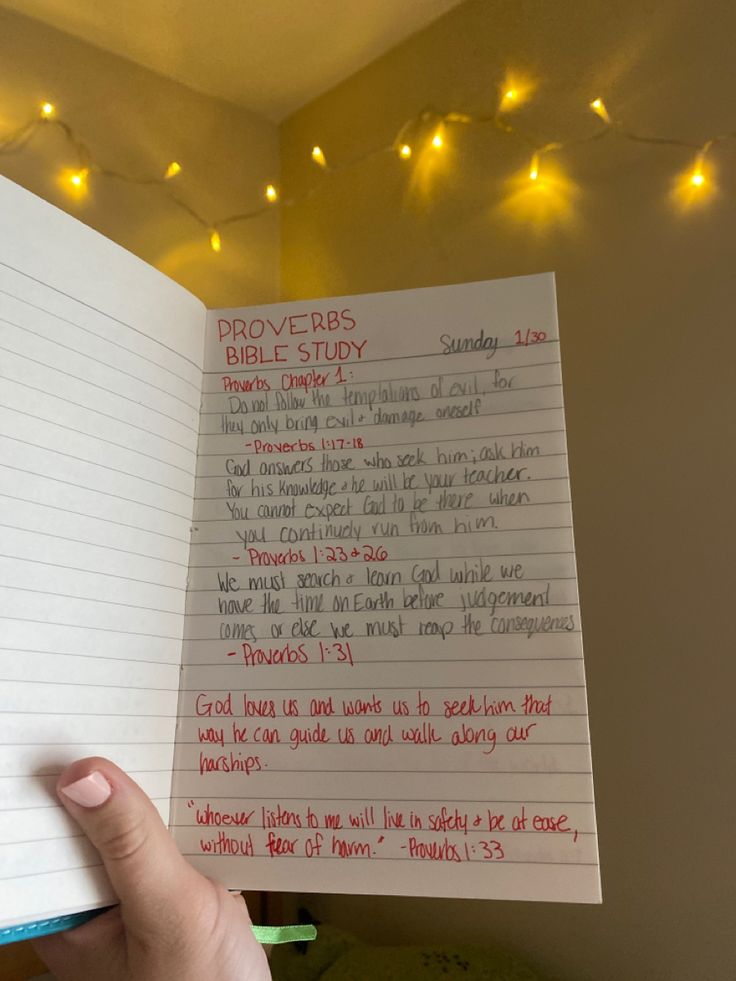 PROVERBS
BIBLE STUDY
Sunday 1/30
Proverbs Chapter 1:
Do not follow the temptations of evil, for
they only bring evil & damage oneself
-Proverbs 1:17-18
God answers those who seek him; ask him
for his knowledge & he will be your teacher.
You cannot expect God to be there when
you continuely run from him.
- Proverbs 1:23 & 26
We must search & learn God while we
have the time on Earth before judgement
comes or else we must reap the consequences
- Proverbs 1:31
God loves us and wants us to seek him that
way he can guide us and walk along our
harships.
"whoever listens to me will live in safety & be at ease,
without fear of harm." -Proverbs 1:33